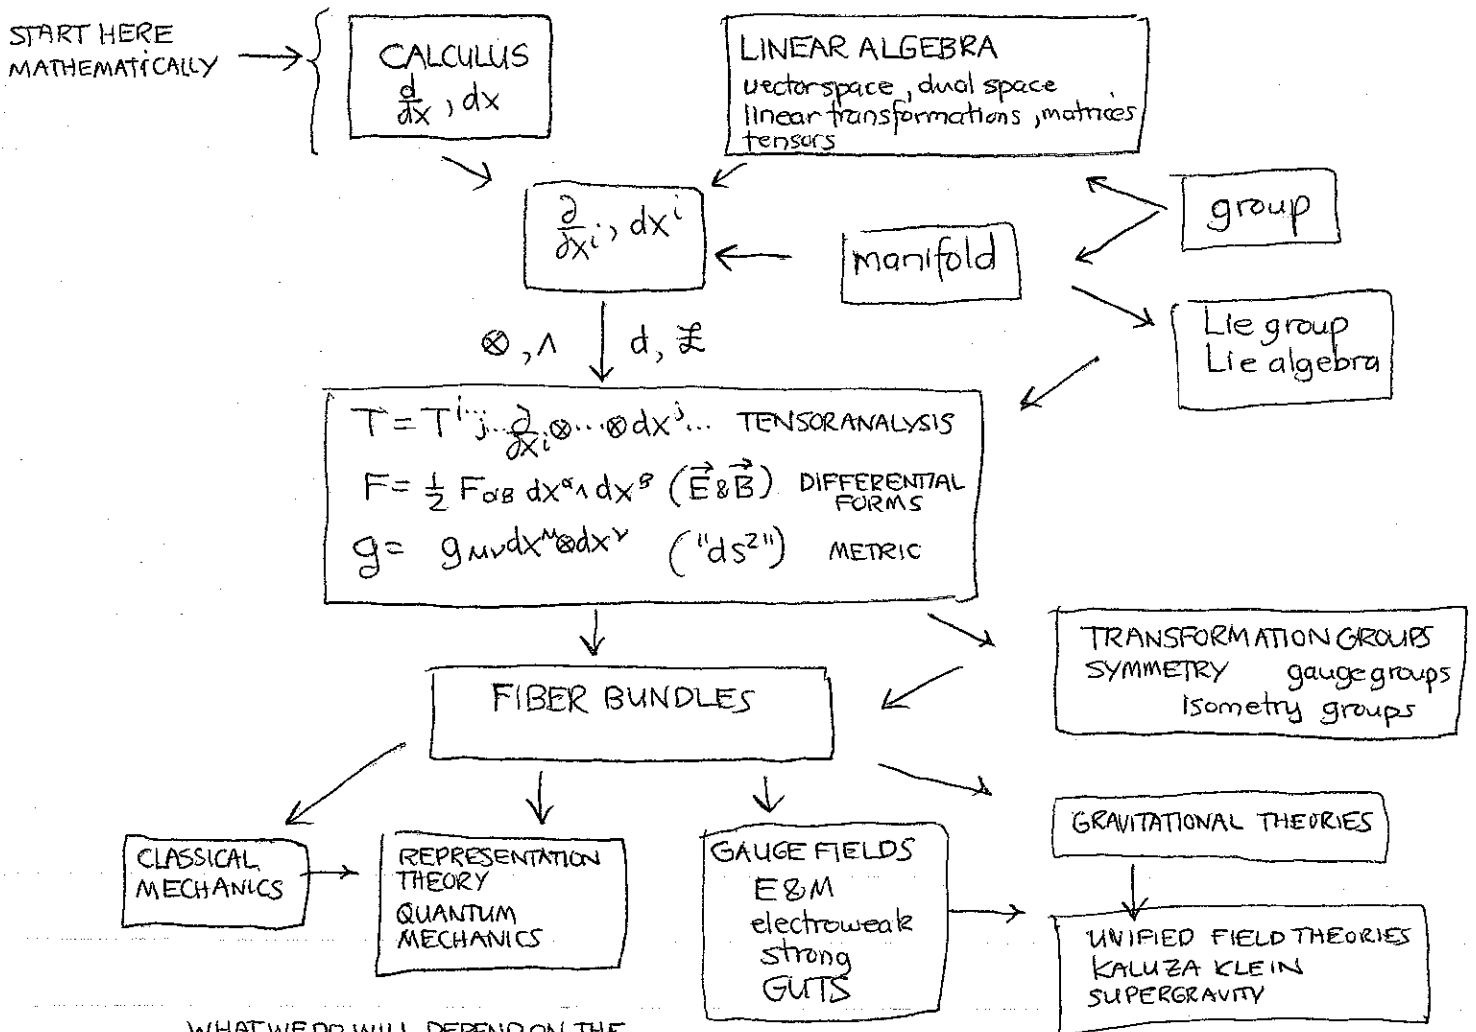 START HERE
MATHEMATICALLY
CALCULUS
d/dx, dx
LINEAR ALGEBRA
vector space, dual space
linear transformations, matrices
tensors
∂/∂xⁱ, dxⁱ
manifold
group
Lie group
Lie algebra
⊗, ∧ d, £
T = Tⁱ··ⱼ... ∂/∂xⁱ ⊗···⊗ dxʲ... TENSOR ANALYSIS
F = ½ F_αβ dx^α ∧ dx^β (E⃗ & B⃗) DIFFERENTIAL
FORMS
g = g_μν dx^μ ⊗ dx^ν ("ds²") METRIC
TRANSFORMATION GROUPS
SYMMETRY gauge groups
isometry groups
FIBER BUNDLES
GRAVITATIONAL THEORIES
CLASSICAL
MECHANICS
REPRESENTATION
THEORY
QUANTUM
MECHANICS
GAUGE FIELDS
E&M
electroweak
strong
GUTS
UNIFIED FIELD THEORIES
KALUZA KLEIN
SUPERGRAVITY
WHAT WE DO WILL DEPEND ON THE